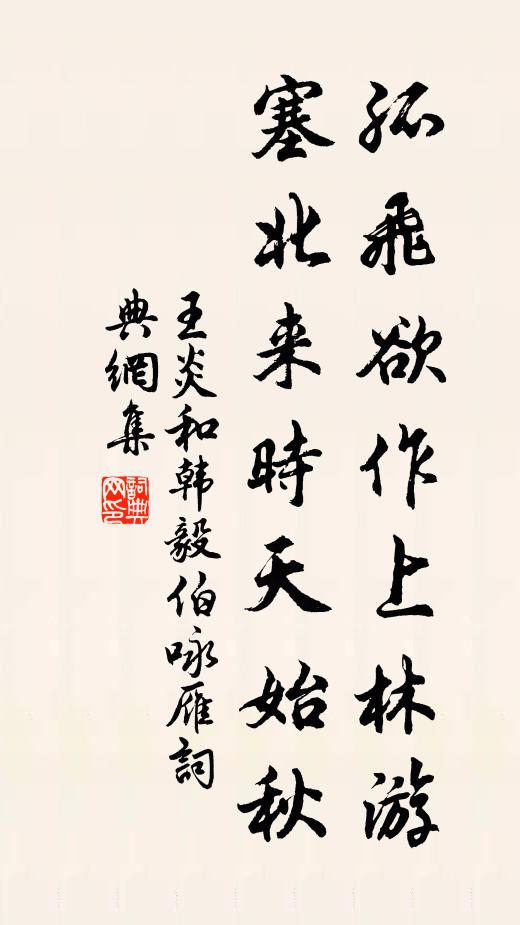 孤飛欲作上林游
塞北来時天始秋
王炎和韩毅伯咏雁詞
典網集
詞典
网印